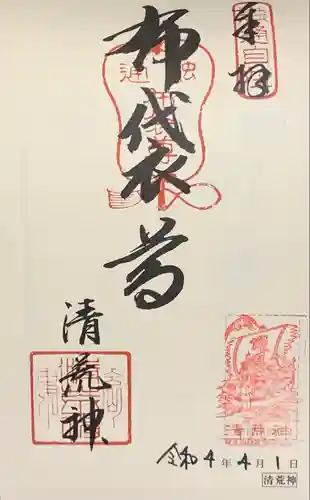 奉拝
布袋尊
清荒神
令和4年4月1日
清荒神